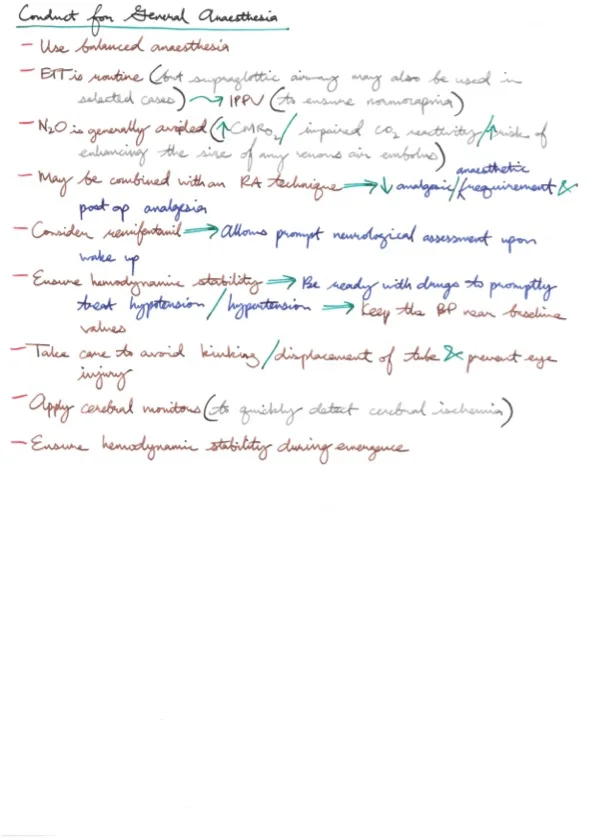 Conduct for General Anaesthesia
- Use balanced anaesthesia
- ETT is routine (but supraglottic airway may also be used in
selected cases) → IPPV (to ensure normocapnia)
- N2O is generally avoided (↑CMRO2/ impaired CO2 reactivity/↑risk of
enhancing the size of any venous air embolus)
- May be combined with an RA technique ⇒ ↓ analgesic/anaesthetic requirement &
post op analgesia
- Consider remifentanil ⇒ Allows prompt neurological assessment upon
wake up
- Ensure hemodynamic stability ⇒ Be ready with drugs to promptly
treat hypotension / hypertension → Keep the BP near baseline
values
- Take care to avoid kinking/displacement of tube & prevent eye
injury
- Apply cerebral monitors (to quickly detect cerebral ischemia)
- Ensure hemodynamic stability during emergence